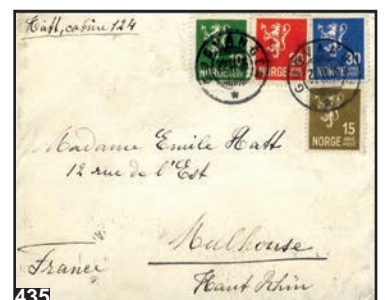 Hatt, cabine 124
10 20 30
NORGE NORGE NORGE
15
NORGE
Madame Emile Hatt
12 rue de l'Est
Mulhouse
France
Haut Rhin
435